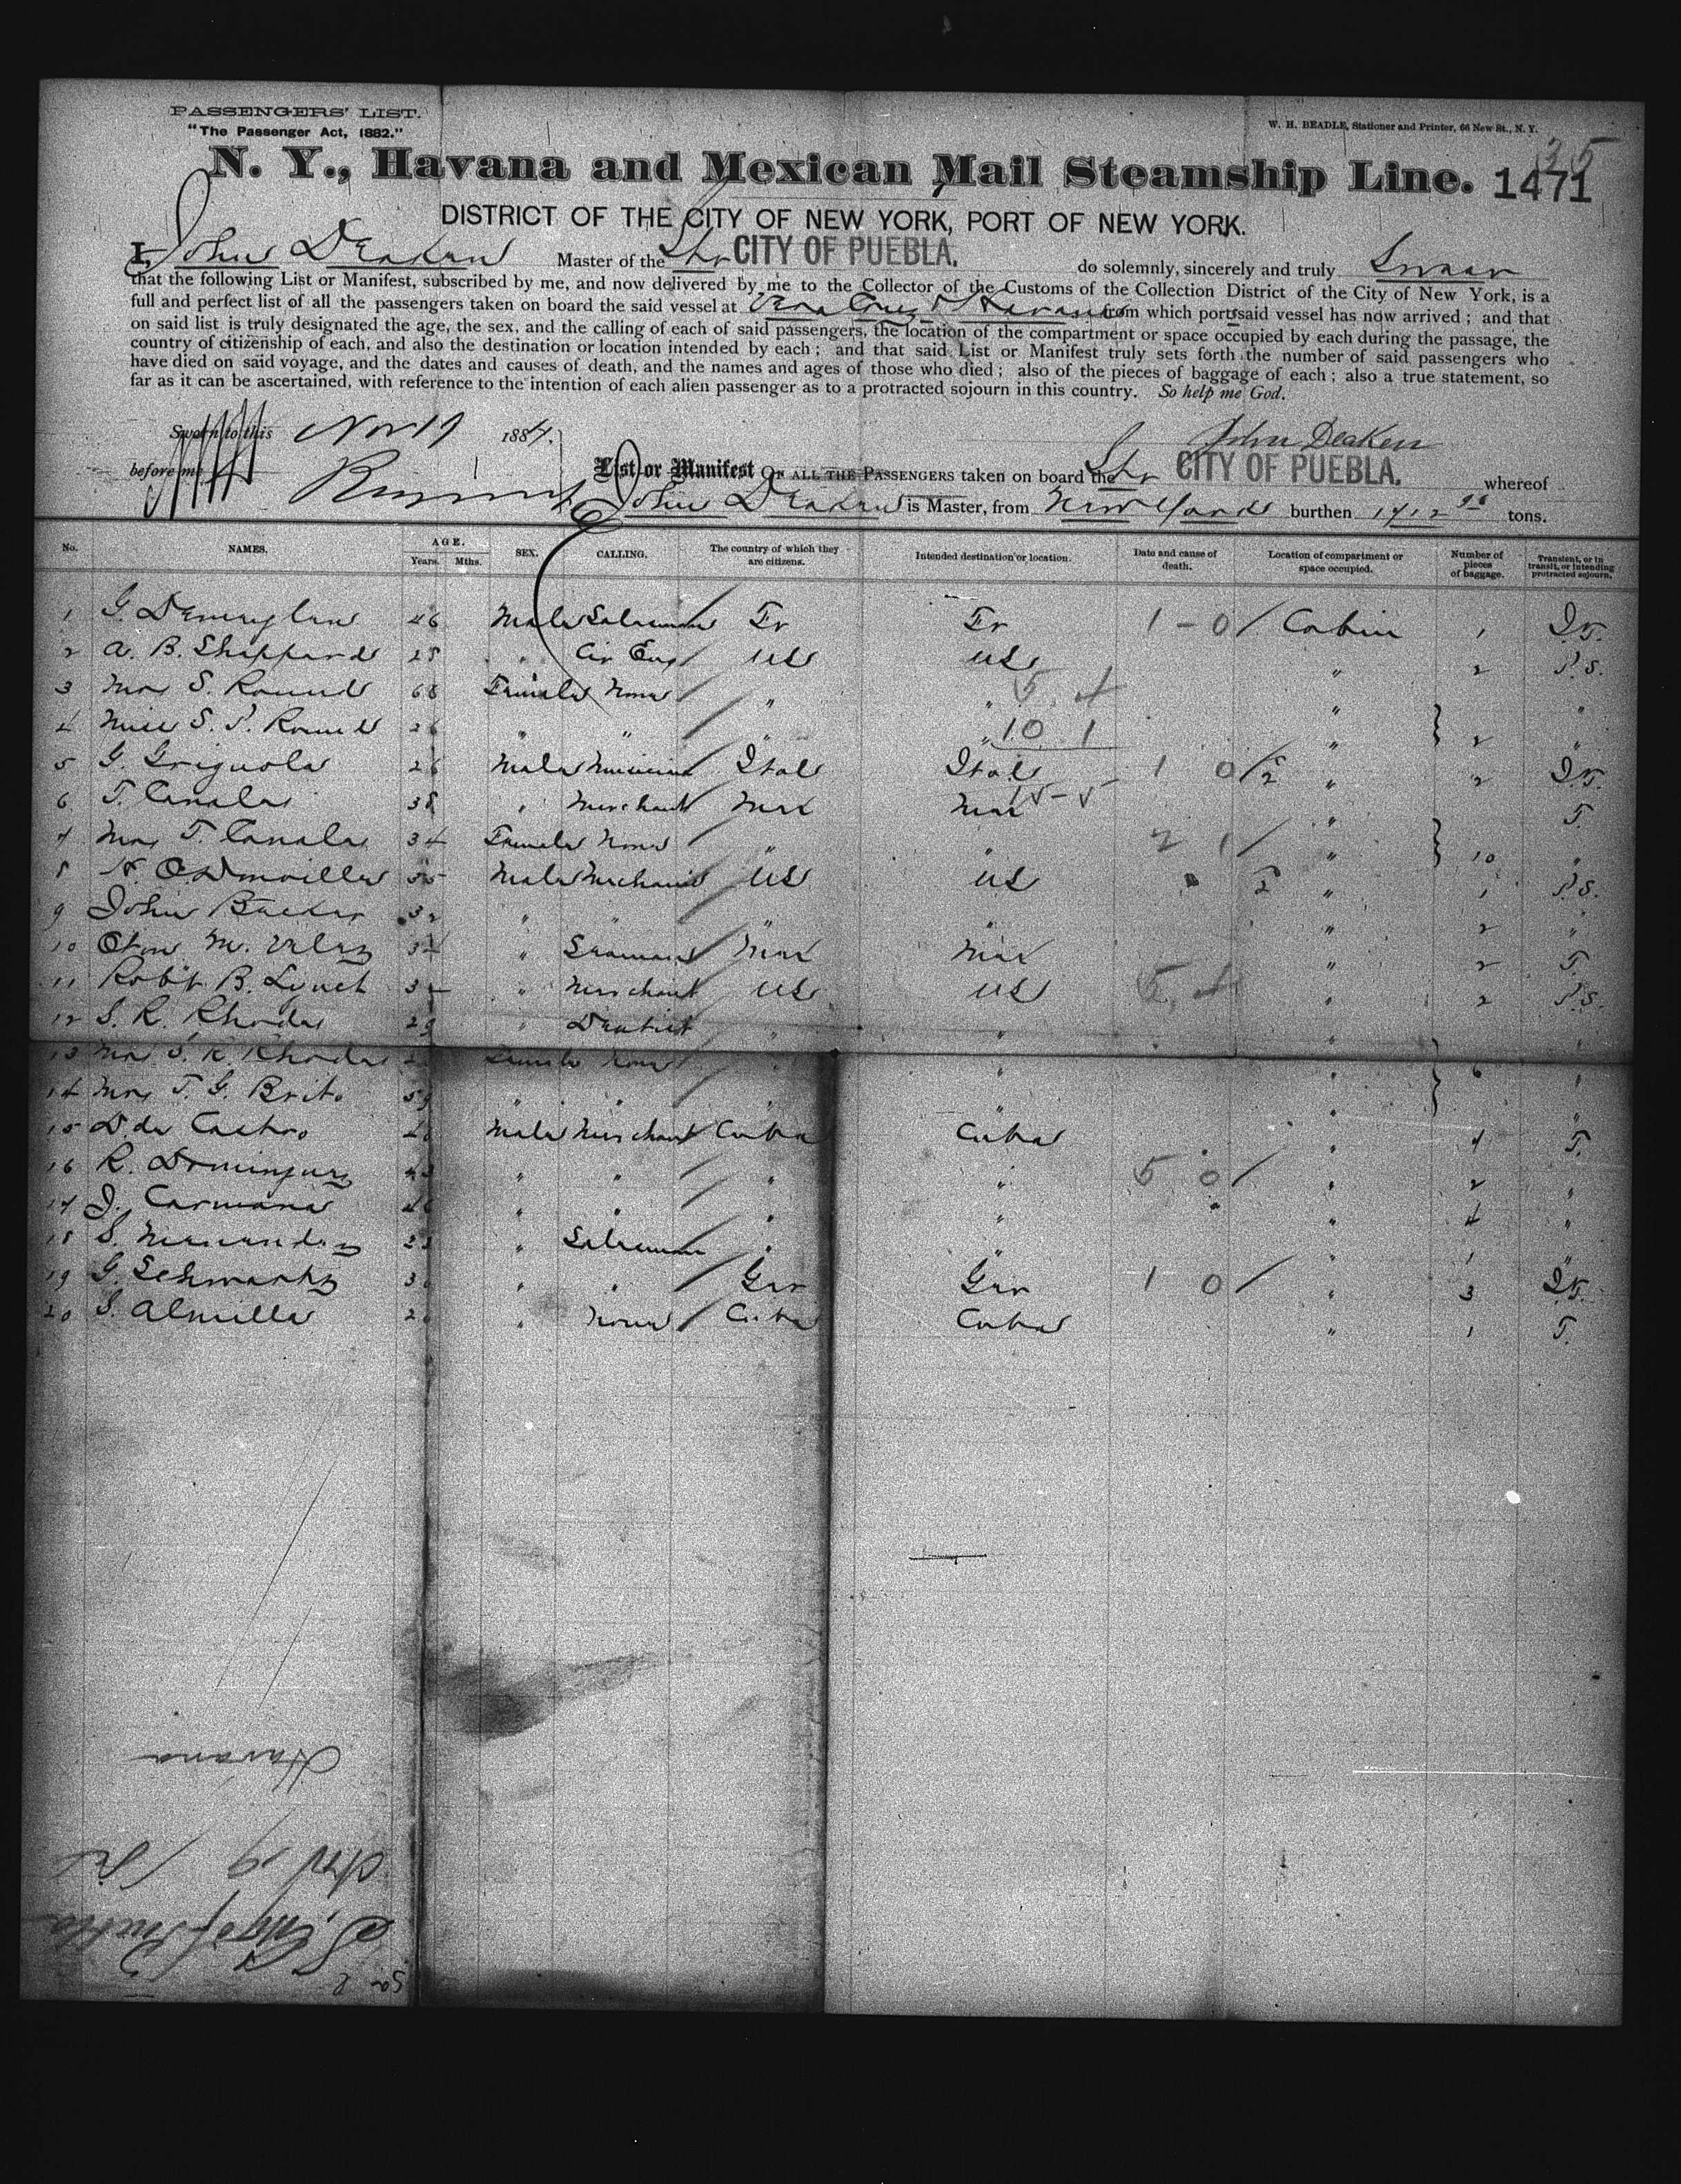 PASSENGERS' LIST.
"The Passenger Act, 1882."
W. H. BEADLE, Stationer and Printer, 66 New St., N. Y.
35
N. Y., Havana and Mexican Mail Steamship Line. 1471
DISTRICT OF THE CITY OF NEW YORK, PORT OF NEW YORK.
I, John Deaken Master of the Str CITY OF PUEBLA. do solemnly, sincerely and truly Swear
that the following List or Manifest, subscribed by me, and now delivered by me to the Collector of the Customs of the Collection District of the City of New York, is a
full and perfect list of all the passengers taken on board the said vessel at Vera Cruz & Havana from which ports said vessel has now arrived; and that
on said list is truly designated the age, the sex, and the calling of each of said passengers, the location of the compartment or space occupied by each during the passage, the
country of citizenship of each, and also the destination or location intended by each; and that said List or Manifest truly sets forth the number of said passengers who
have died on said voyage, and the dates and causes of death, and the names and ages of those who died; also of the pieces of baggage of each; also a true statement, so
far as it can be ascertained, with reference to the intention of each alien passenger as to a protracted sojourn in this country. So help me God.
Sworn to this Nov 19 1884.
John Deaken
before me
List or Manifest OF ALL THE PASSENGERS taken on board the Str CITY OF PUEBLA. whereof
John Deaken is Master, from New York burthen 1712 tons.
No. NAMES. AGE. Years. Mths. SEX. CALLING. The country of which they are citizens. Intended destination or location. Date and cause of death. Location of compartment or space occupied. Number of pieces of baggage. Transient, or in transit, or intending protracted sojourn.
1 G. 46 Male Salesman Fr Fr 1-0 Cabin 1
2 A. B. Sheppard 28 " Civ Eng US US " 2 P.S.
3 Mrs S. Round 68 Female None " " " "
4 Miss S. J. Round 26 " " " " 10 1 " 2 "
5 G. Grignola 26 Male Musician Ital Ital 1 0 " 2
6 T. Canalas 38 " Merchant Mex Mex " T.
7 Mrs T. Canalas 34 Female None " " 2 1 " 10 "
8 55 Male Merchant US US " 1 P.S.
9 John 32 " " " " " 2 "
10 M. Velez " Seaman Mex Mex " 2 T.
11 Robt B. Lynch " Merchant US US " 2 P.S.
12 S. R. Rhodes 29 " Dentist " " "
13 Mrs S. R. Rhodes Female None " " " 6 "
14 Mrs T. G. Brito " " " " " "
15 D. de Castro Male Merchant Cuba Cuba " 4 T.
16 R. Dominguez " " " " 5 0 " 2 "
17 J. Carmona " " " " " 4 "
18 S. " Salesman " " " 1 "
19 G. Schwartz " " Ger Ger 1 0 " 3
20 S. Almilla " None Cuba Cuba " 1 T.
Havana
Nov 19
S. City of Puebla